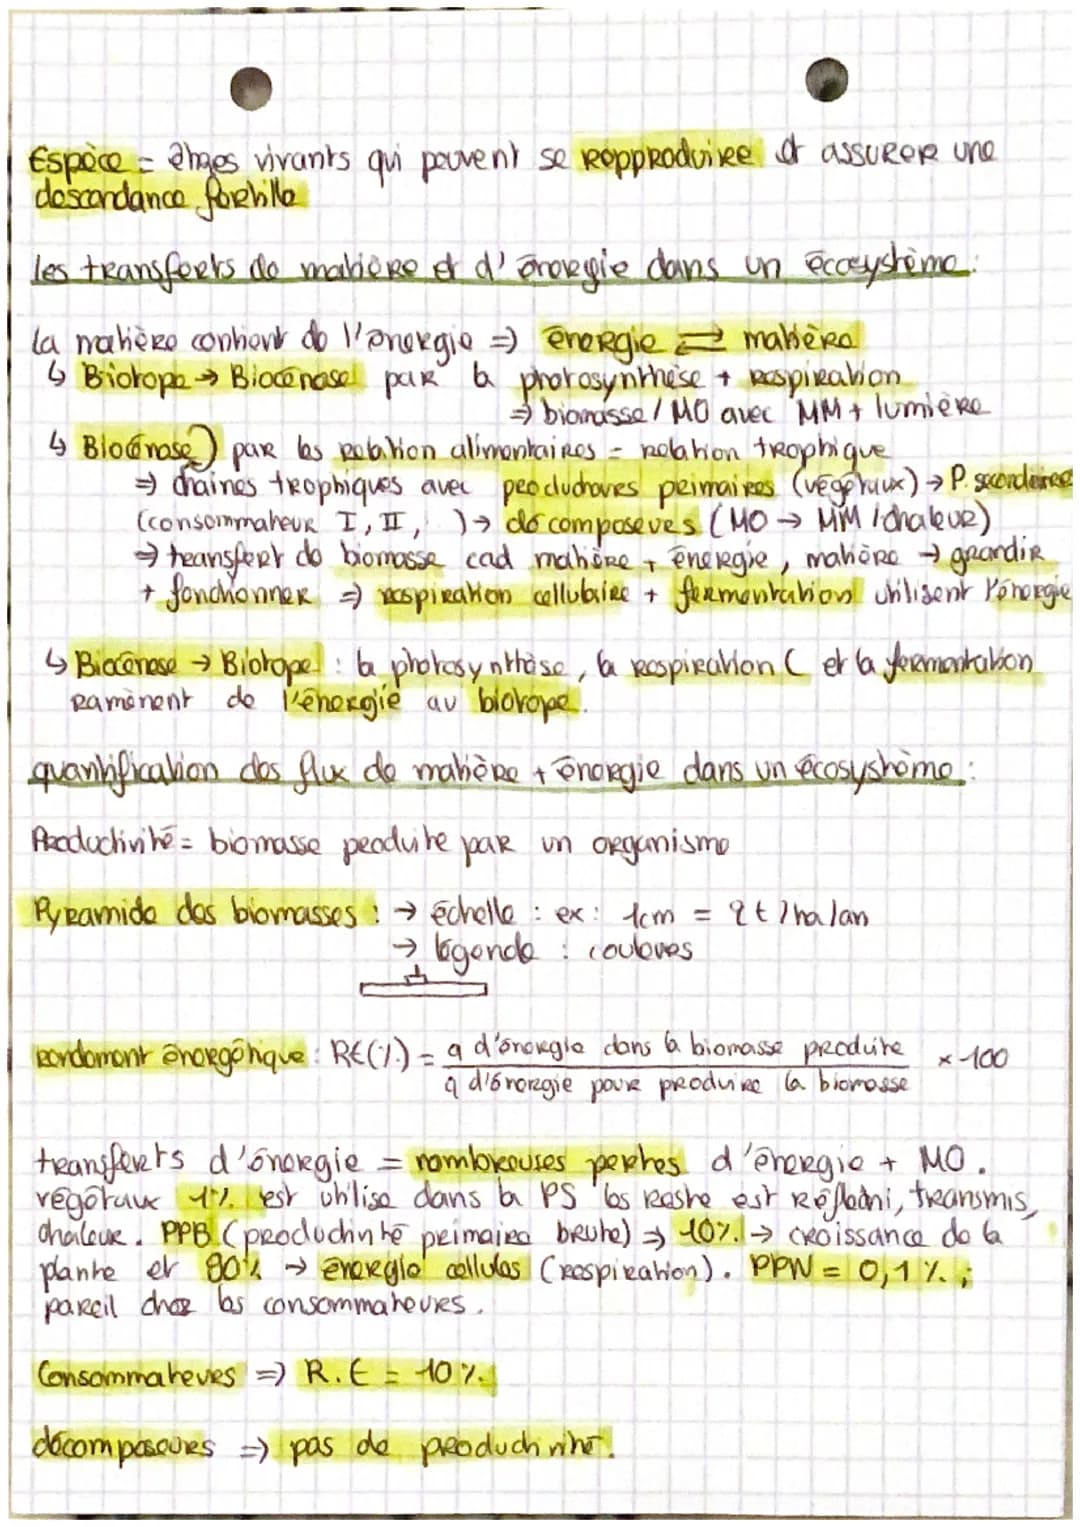 Espèce = êtres vivants qui peuvent se repproduire et assurer une
descendance fertille
les transferts de matière et d'énergie dans un éccosystème :
La matière contient de l'énergie => énergie ⇄ matière
↳ Biotope → Biocénose par la photosynthèse + respiration
=> biomasse / MO avec MM + lumière
↳ Biocénose) par les relation alimentaires = relation trophique
=> chaines trophiques avec producteures primaires (végétaux) → P. secondaires
(consommateur I, II, ) → décomposeurs (MO → MM / chaleur)
=> transfert de biomasse cad matière + énergie, matière → grandir
+ fonctionner => respiration cellulaire + fermentation utilisent l'énergie
↳ Biocénose → Biotope : la photosynthèse, la respiration ( et la fermentation
ramènent de l'énergie au biotope.
quantification des flux de matière + énergie dans un écosystème :
Productivité = biomasse produite par un organisme
Pyramide des biomasses : → échelle : ex : 1cm = 2t/ha/an
→ légende : couleurs
rendement énergétique : RE(%) = q d'énergie dans la biomasse produite × 100
q d'énergie pour produire la biomasse
transferts d'énergie = nombreuses pertes d'énergie + MO.
végétaux 1% est utilise dans la PS les reste est réfléchi, transmis,
chaleur. PPB (productivité primaire brute) => 10% → croissance de la
plante et 80% → énergie cellules (respiration). PPN = 0,1%;
pareil chez les consommateurs.
Consommateurs => R.E = 10%
décomposeurs => pas de productivité.